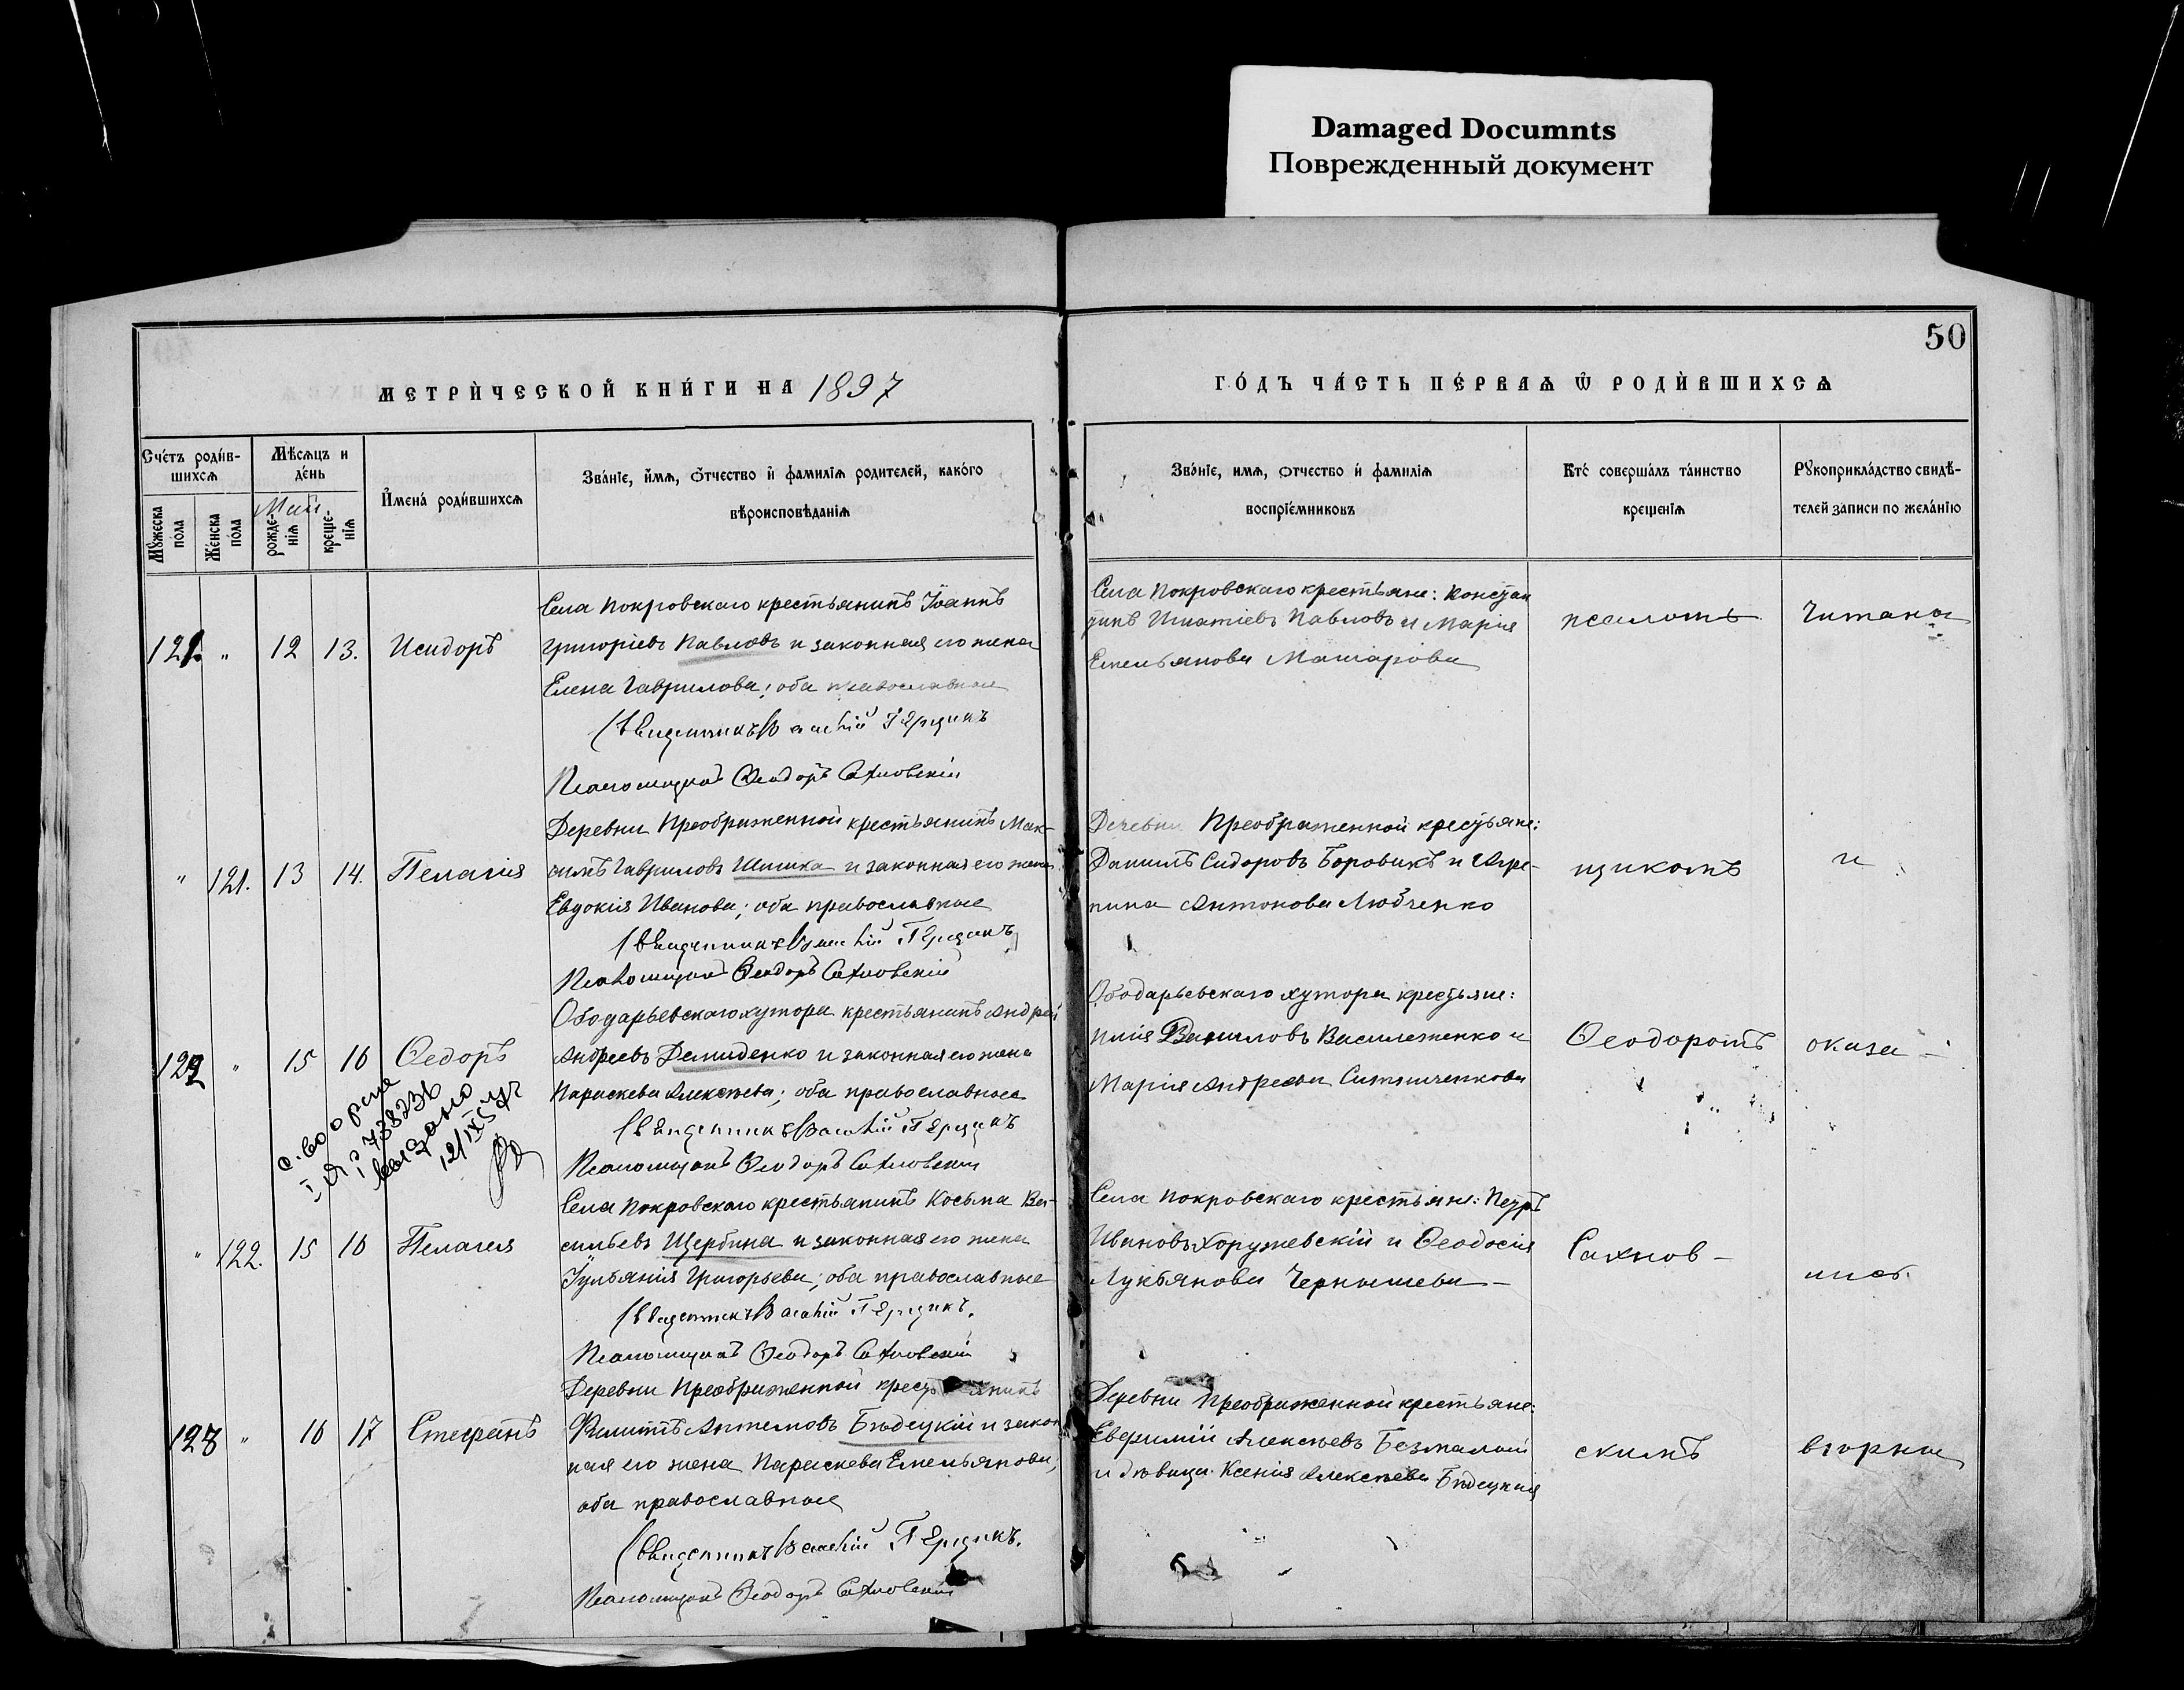 Damaged Documnts
Поврежденный документ
50
МЕТРИЧЕСКОЙ КНИГИ НА 1897
ГОДЪ ЧАСТЬ ПЕРВАЯ Ѡ РОДИВШИХСЯ
Счетъ родив-
шихся
Мѣсяцъ и
день
Май
Мужеска
пола
Женска
пола
рожде-
нія
креще-
нія
Имена родившихся
Званіе, имя, отчество и фамилія родителей, какого
вѣроисповѣданія
Званіе, имя, отчество и фамилія
воспріемниковъ
Кто совершалъ таинство
крещенія
Рукоприкладство свидѣ-
телей записи по желанію
121. " 12 13. Исидоръ
Села Покровскаго крестьянинъ Іоаннъ
Григоріевъ Павловъ и законная его жена
Елена Гаврилова; оба православные
Священникъ Василій
Псаломщикъ Ѳеодоръ Сахновскій
Села Покровскаго крестьяне: Констан
тинъ Игнатіевъ Павловъ и Марія
Емельянова
псалом
Читана
" 121. 13 14. Пелагія
Деревни Преображенной крестьянинъ Мак-
симъ Гавриловъ Шишка и законная его жена
Евдокія Иванова; оба православные
Священникъ Василій
Псаломщикъ Ѳеодоръ Сахновскій
Деревни Преображенной крестьяне:
Даніилъ Сидоровъ Боровикъ и Агре-
пина Антонова Любченко
щикомъ
и
122 " 15 16 Ѳедоръ
1 Я
738236
выдано
12/IX
хутора крестьянинъ Андрей
Андреевъ Демиденко и законная его жена
Параскева Алексѣева; оба православные
Священникъ Василій
Псаломщикъ Ѳеодоръ Сахновскій
хутора крестьяне:
Василовъ Василеженко и
Марія Андреева
Ѳеодоромъ
оказа-
" 122. 15 16 Пелагея
Села Покровскаго крестьянинъ Косьма Ва-
сильевъ Щербина и законная его жена
Іульянія Григорьева; оба православные
Священникъ Василій
Псаломщикъ Ѳеодоръ Сахновскій
Села Покровскаго крестьяне: Петръ
Ивановъ Хоружевскій и Ѳеодосія
Лукьянова Чернышева
Сахнов-
лись
123 " 16 17 Стефанъ
Деревни Преображенной крестьянинъ
Филиппъ Антемовъ Бѣдецкій и закон
ная его жена Параскева Емельянова;
оба православные
Священникъ Василій
Псаломщикъ Ѳеодоръ Сахновскій
Деревни Преображенной крестьяне:
Евфимій Алексѣевъ Безмалый
и дѣвица Ксенія Алексѣева Бѣдецкая
скимъ